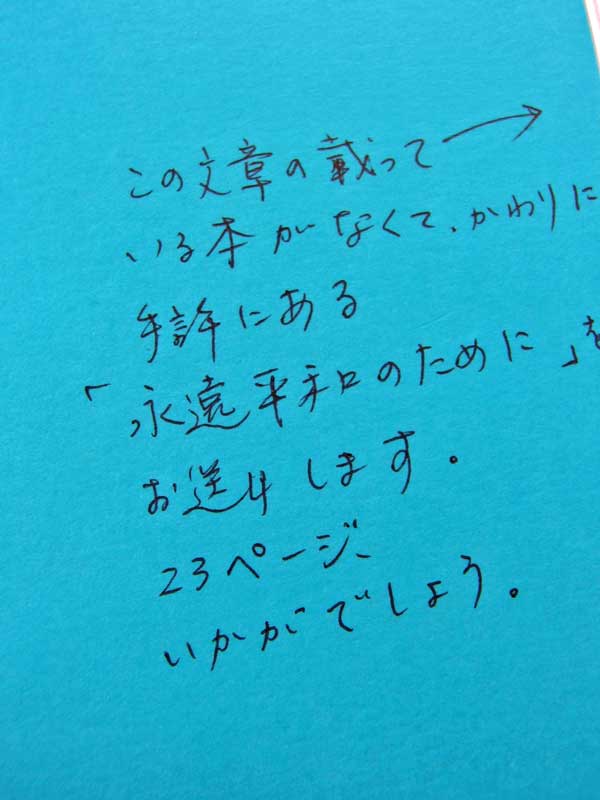 この文章の載って→
いる本がなくて、かわりに
手許にある
「永遠平和のために」を
お送りします。
23ページ、
いかがでしょう。